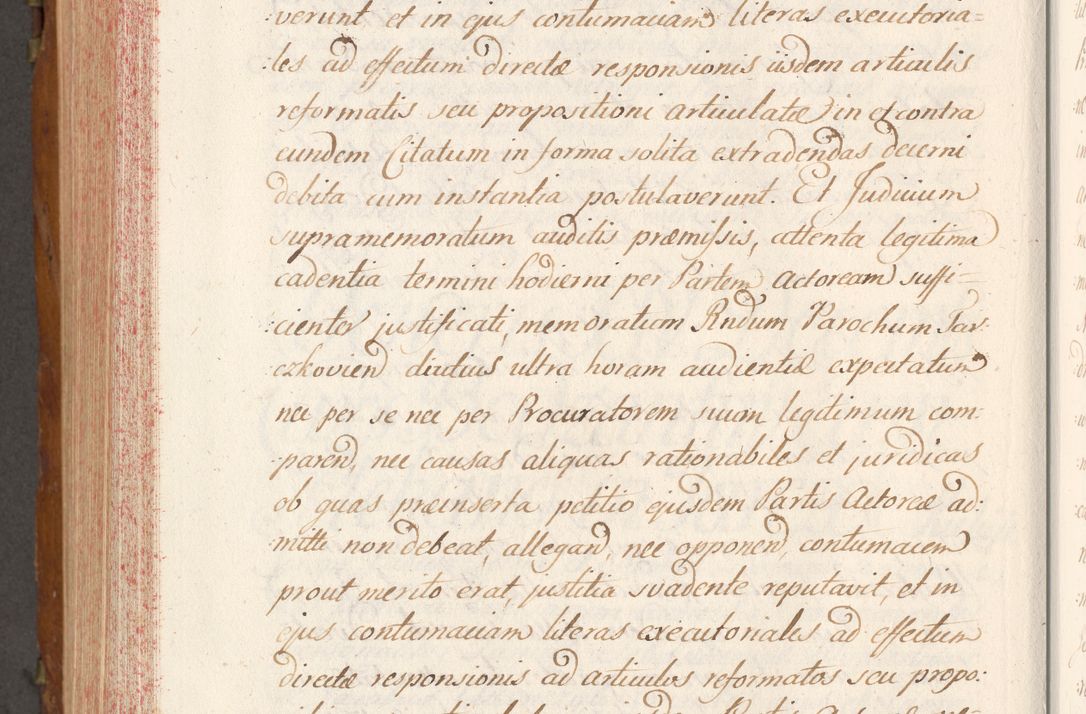 verunt et in ejus contumaciam literas executoria=
:les ad effectum directæ responsionis iisdem articulis
reformatis seu propositioni articulatæ) in et contra
eundem Citatum in forma solita extradendas decerni
debita cum instantia postulaverunt. Et Judicium
supramemoratum auditis præmissis, attenta legitima
cadentia termini hodierni per Partem Actoream suffi=
:cienter justificati, memoratum Rndum Parochum Tar:
:czkovien diutius ultra horam audientiæ expectatum
nec per se nec per Procuratorem suum legitimum com:
:paren, nec causas aliquas rationabiles et juridicas
ob quas præinserta petitio ejusdem Partis Actoreæ ad:
:mitti non debeat, allegan, nec opponen, contumacem
prout merito erat, justitia svadente reputavit, et in
ejus contumaciam literas executoriales ad effectum
directæ responsionis ad articulos reformatos seu propo: